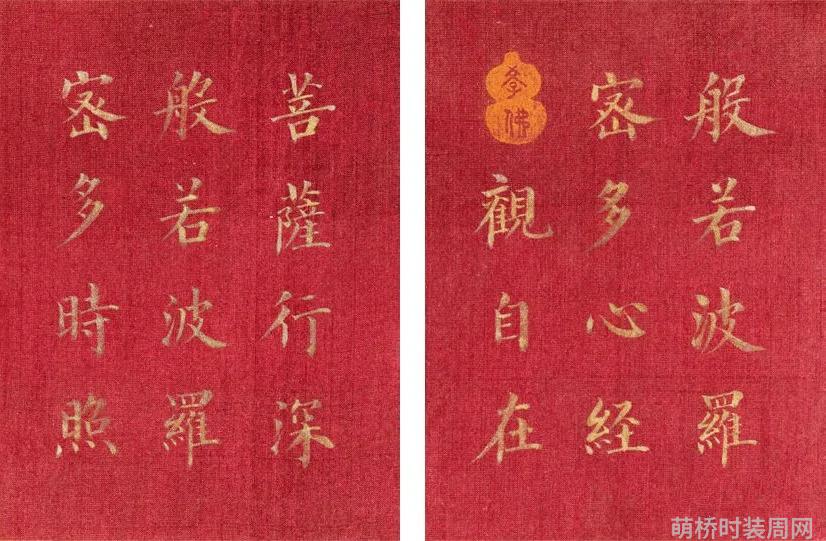 般若波羅
密多心経
孝佛
觀自在
菩薩行深
般若波羅
密多時照
萌桥时装周网